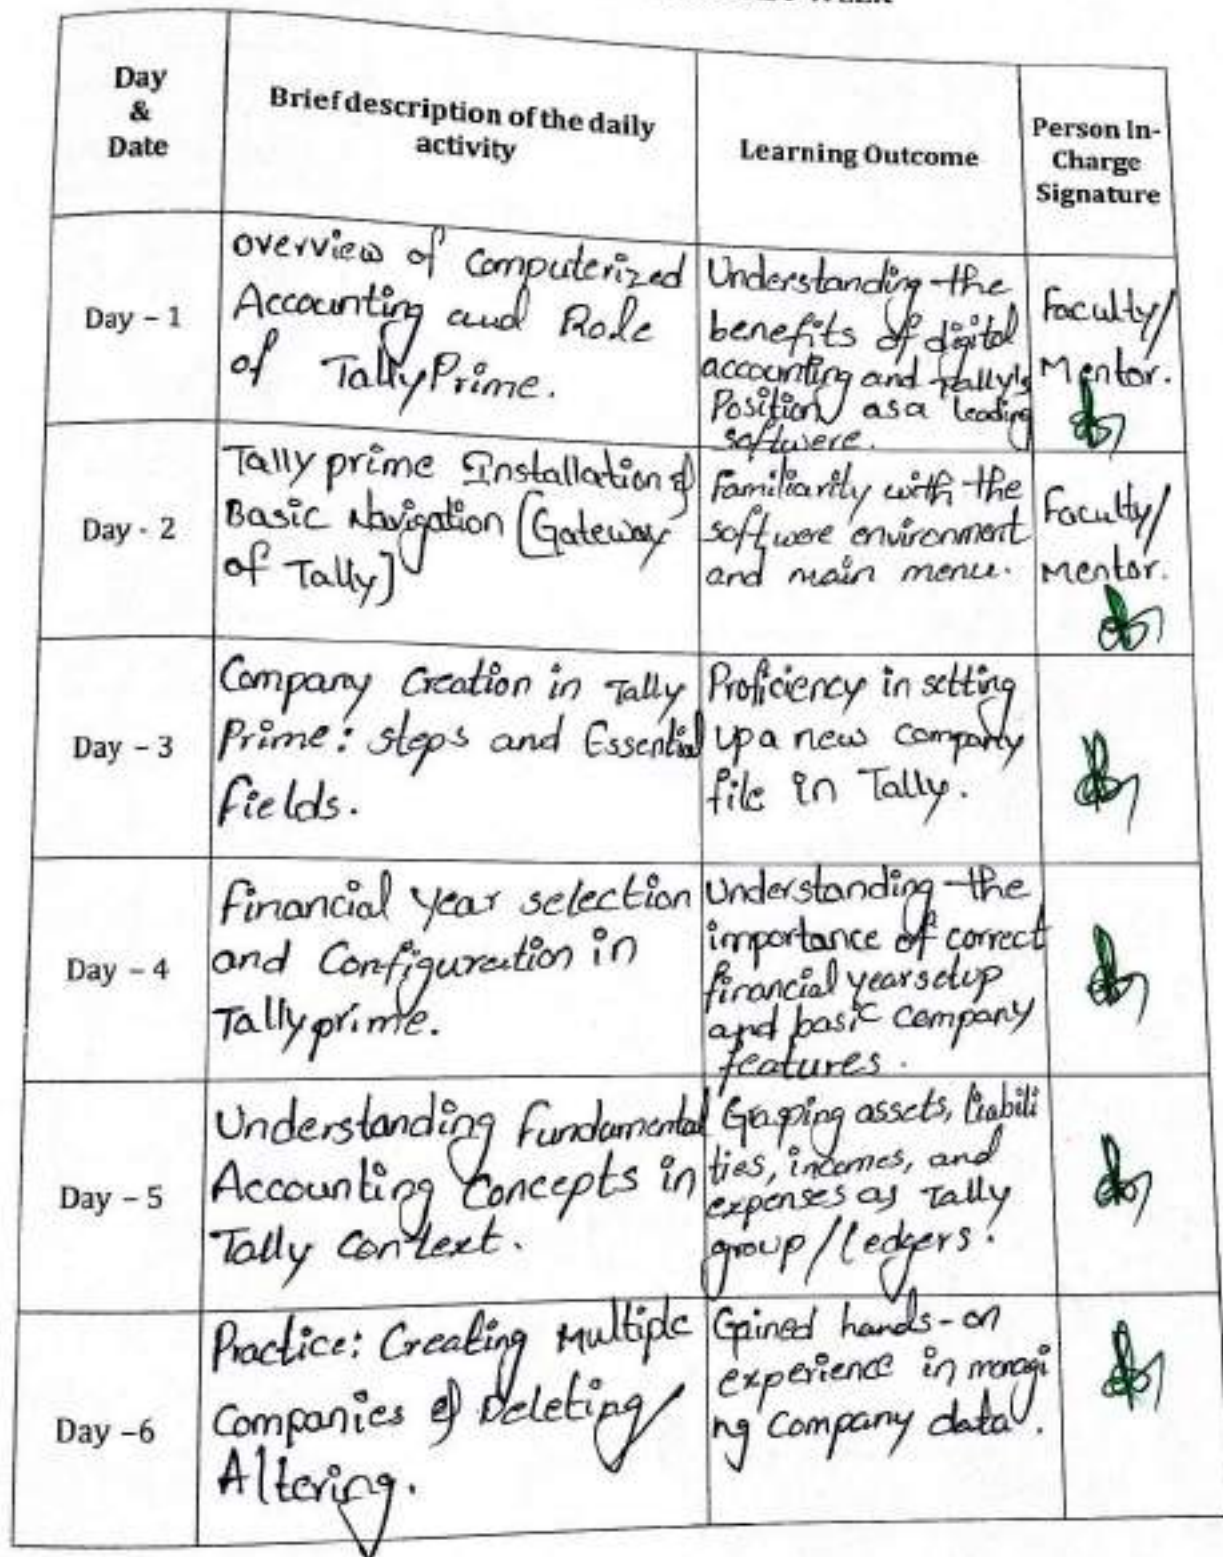 WEEK
Day
&
Date
Brief description of the daily
activity
Learning Outcome
Person In-
Charge
Signature
Day – 1
overview of Computerized
Accounting and Role
of TallyPrime.
Understanding the
benefits of digital
accounting and Tally's
Position as a leading
softwere.
Faculty/
Mentor.
Day - 2
Tally prime Installation &
Basic Navigation [Gateway
of Tally]
Familiarity with the
softwere environment
and main menu.
Faculty/
mentor.
Day – 3
Company Creation in Tally
Prime: steps and Essential
fields.
Proficiency in setting
up a new company
file in Tally.
Day – 4
Financial year selection
and Configuration in
Tallyprime.
Understanding the
importance of correct
financial year setup
and basic Company
features.
Day – 5
Understanding Fundamental
Accounting Concepts in
Tally Context.
Grasping assets, liabili
ties, incomes, and
expenses as Tally
group/ledgers.
Day –6
Practice: Creating Multiple
Companies & Deleting/
Altering.
Gained hands-on
experience in managi
ng Company data.